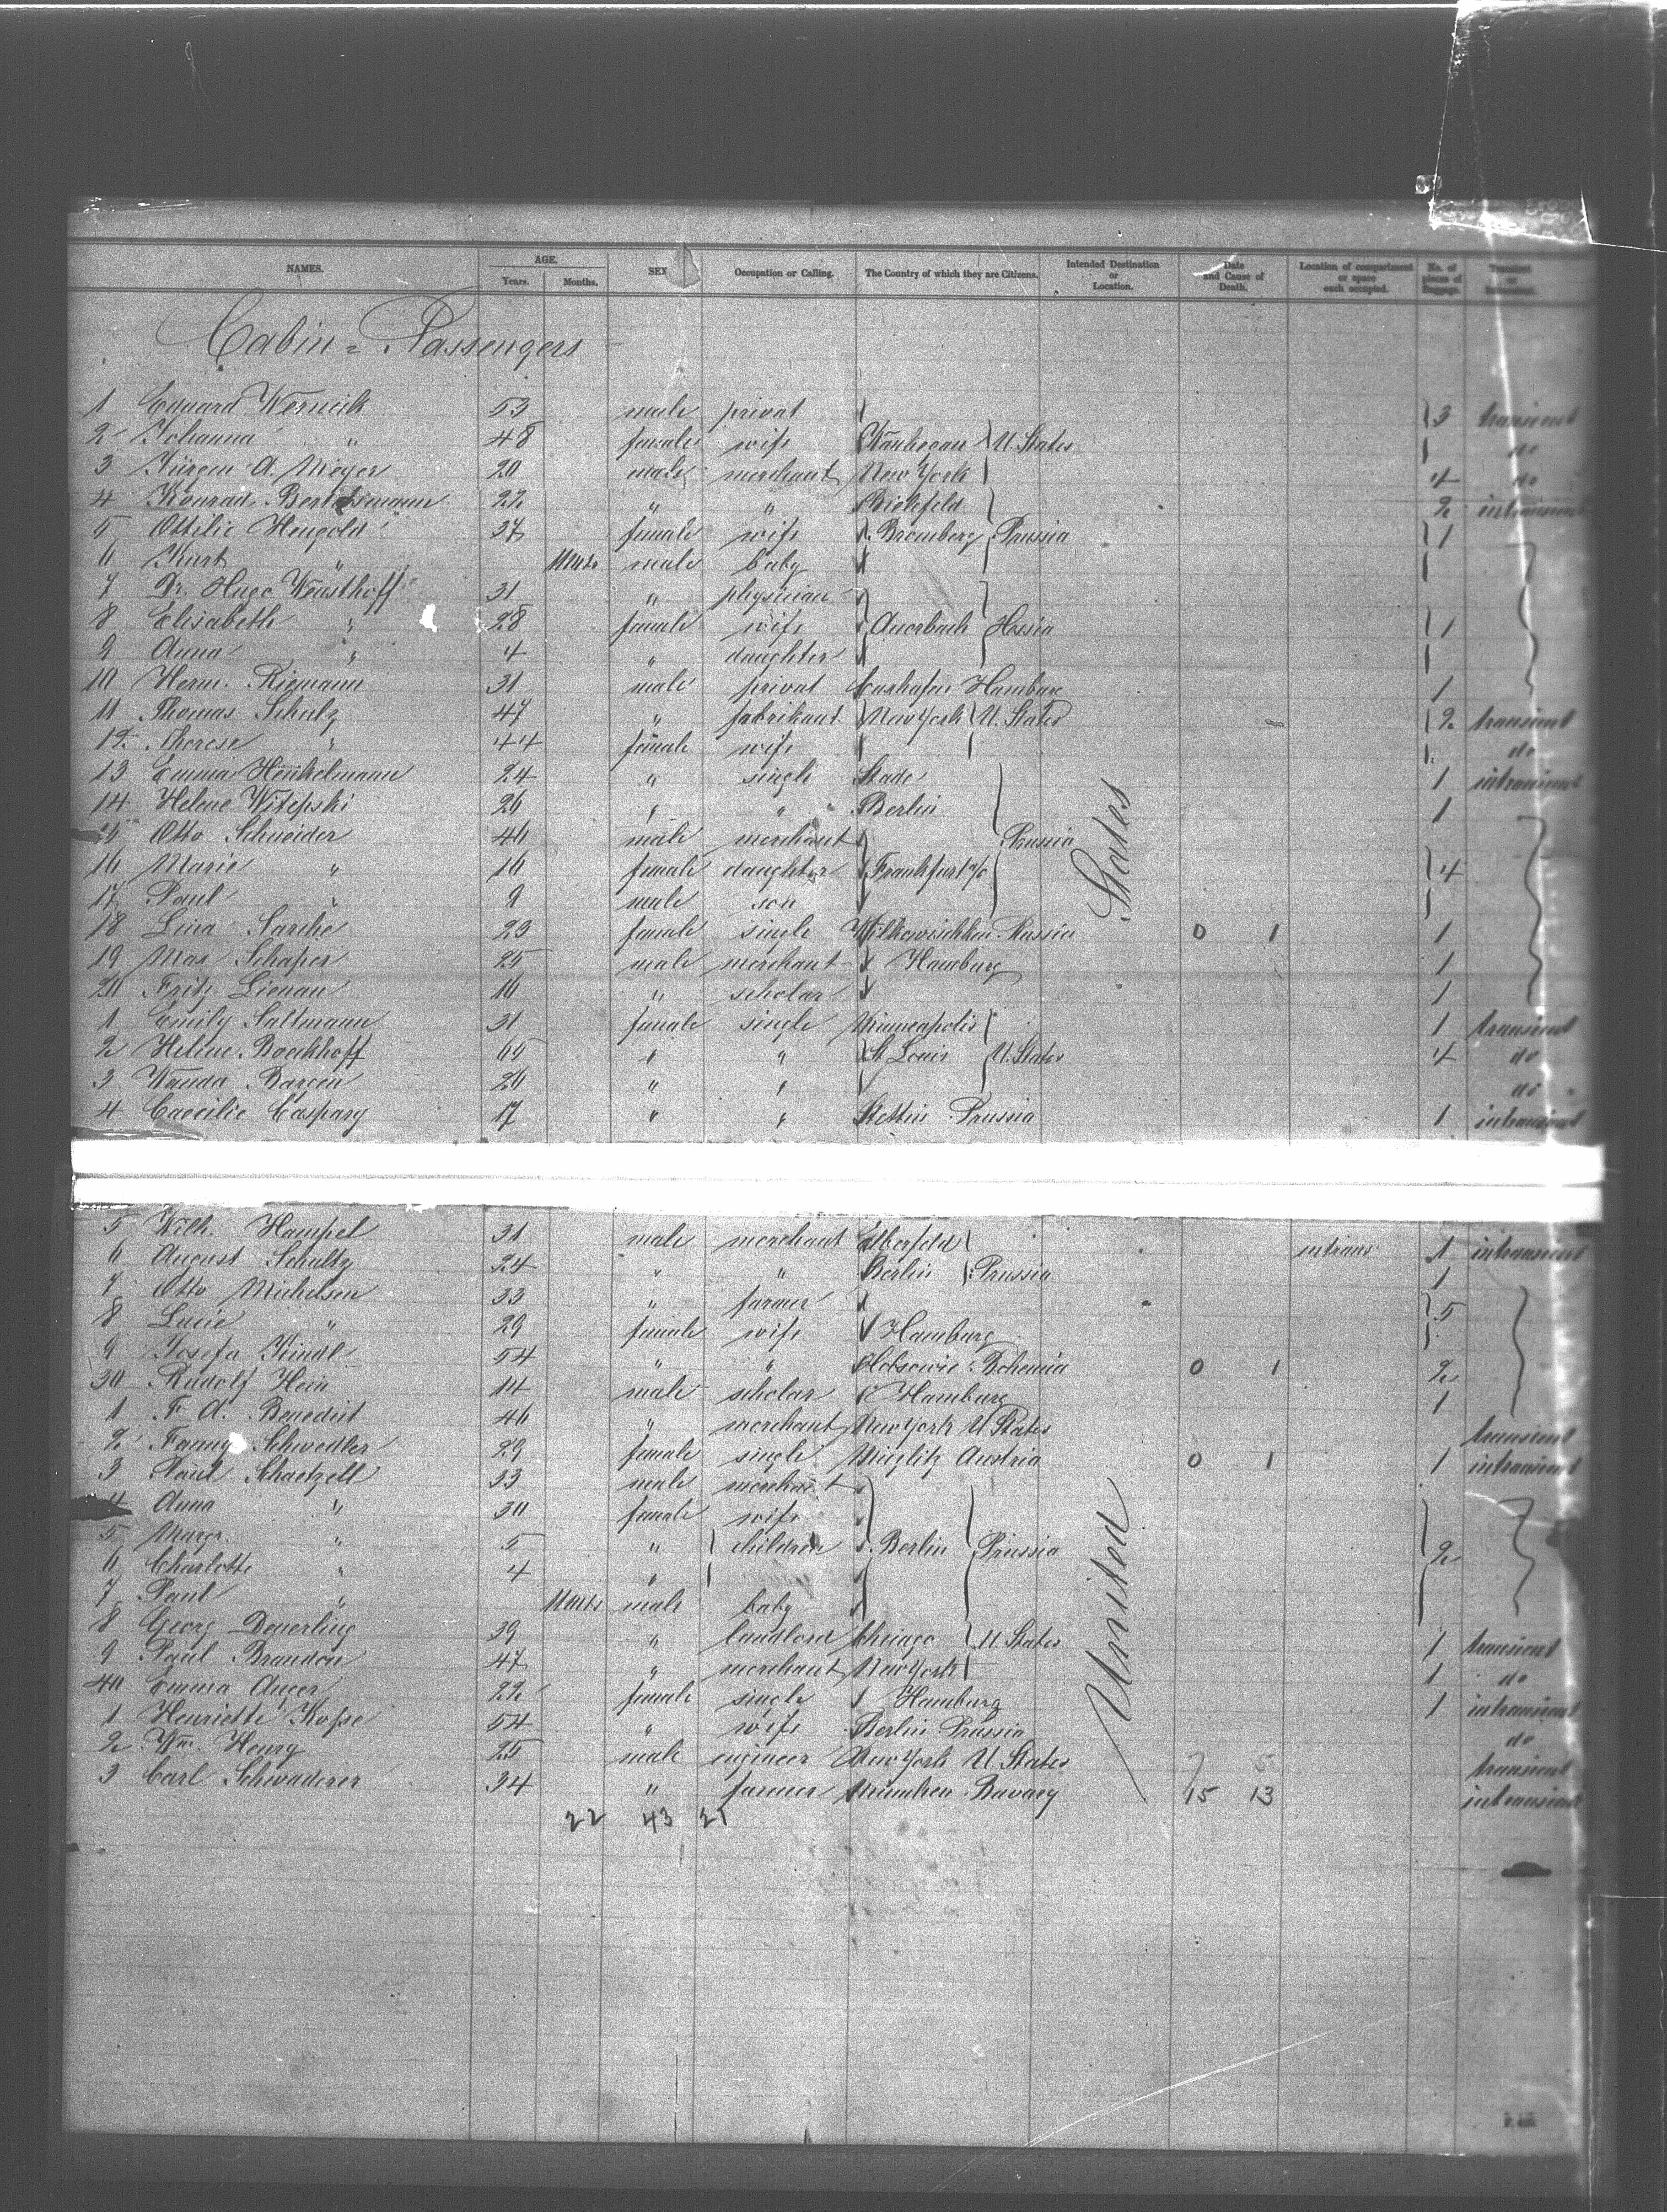 NAMES. AGE. Years. Months. SEX Occupation or Calling. The Country of which they are Citizens. Intended Destination or Location. Date and Cause of Death. Location of compartment or space each occupied. No. of pieces of Baggage. Transient or
Cabin = Passengers
1 Eduard 53 male privat 3 transient
2 Johanna " 48 female wife U. States do
3 Jürgen A. Meyer 20 male merchant New York 4 do
4 Konrad 22 " " 2 intransient
5 Ottilie Hengold 37 female wife Bromberg Prussia 1
6 Kurt " male baby
7 Dr. Hugo 31 " physician
8 Elisabeth " 28 female wife Auerbach Hessia 1
9 Anna " 4 " daughter
10 Herm. Riemann 31 male privat Hamburg 1
11 Thomas Schulz 47 " fabrikant New York U. States 2 transient
12 Therese " 44 female wife do
13 Emma Henkelmann 24 " single Stade 1 intransient
14 Helene Witepski 26 " " Berlin 1
15 Otto Schneider 46 male merchant Prussia
16 Marie " 16 female daughter Frankfurt a/o 4
17 Paul " 9 male son
18 Lina 23 female single Russia 0 1 1
19 Max Schaper 25 male merchant Hamburg 1
20 Fritz Lienau 16 " scholar 1
1 Emily Saltmann 31 female single Minneapolis 1 transient
2 Helene Boeckhoff 65 " " St. Louis U. States 4 do
3 Wanda 26 " " do
4 Caecilie Caspary 17 " " Stettin Prussia 1 intransient
5 Wilh. Hampel 31 male merchant Elberfeld intrans 1 intransient
6 August Schultz 24 " " Berlin Prussia 1
7 Otto Michelsen 33 " farmer 5
8 Lucie " 29 female wife Hamburg
9 Josefa Kindl 54 " " Bohemia 0 1 2
30 Rudolf Hein 14 male scholar Hamburg 1
1 F. A. Benedict 46 " merchant New York U States transient
2 Fanny Schwedler 29 female single Müglitz Austria 0 1 1 intransient
3 Paul Schaetzell 33 male merchant
4 Anna " 30 female wife
5 Margr. " 5 " children Berlin Prussia 2
6 Charlotte " 4 "
7 Paul " male baby
8 Georg Deuerling 39 " landlord Chicago U. States 1 transient
9 Paul Brandon 47 " merchant New York 1 do
40 Emma 22 female single Hamburg 1 intransient
1 Henriette 54 " wife Berlin Prussia do
2 Wm. Henry 25 male engineer New York U. States 7 5 transient
3 Carl Schwaderer 34 " farmer München Bavary 15 13 intransient
22 43 21
United States